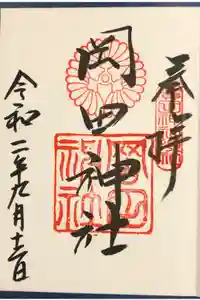 奉拝
岡田神社
令和二年九月十二日